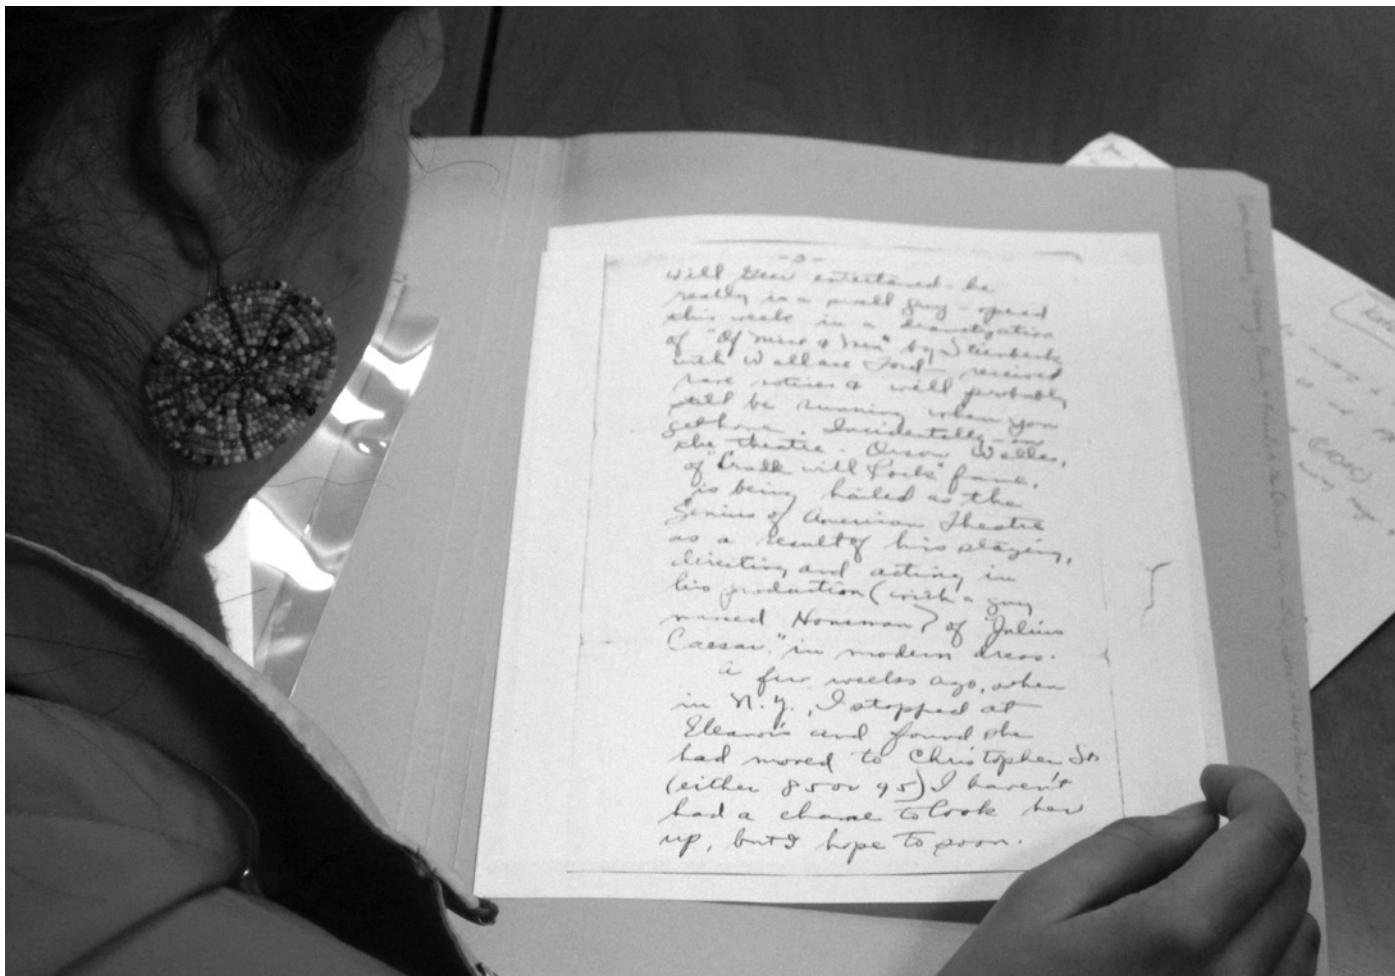 -3-
Will Geer entertained - he
really is a swell guy - opened
this week in a dramatization
of "Of Mice & Men" by Steinbeck
with Wallace Ford - received
rave notices & will probably
still be running when you
get home. Incidentally - on
the theatre - Orson Welles,
of "Cradle will Rock" fame,
is being hailed as the
Genius of American Theatre
as a result of his staging,
directing and acting in
his production (with a guy
named Houseman) of "Julius
Caesar" in modern dress.
A few weeks ago, when
in N.Y., I stopped at
Eleanor's and found she
had moved to Christopher St
(either 85 or 95) I haven't
had a chance to look her
up, but I hope to soon.